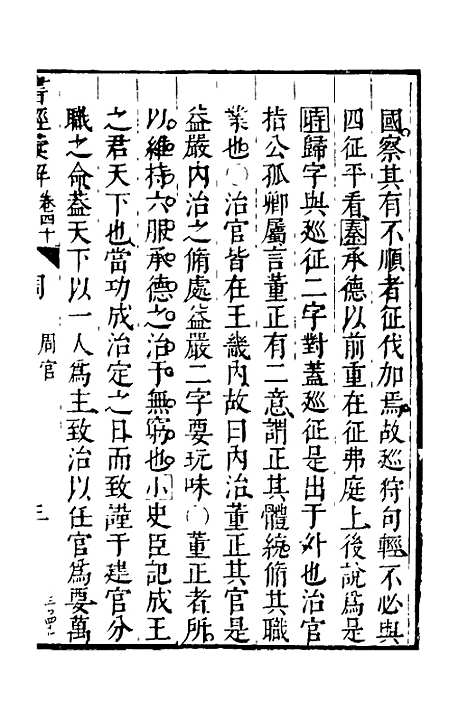 國察其有不順者征伐加焉故廵狩句輕不必與
四征平看𡊮承德以前重在征弗庭上後說爲是
時歸字與廵征二字對葢廵征是出于外也治官
指公孤卿屬言董正有二意謂正其體統脩其職
業也○治官皆在王畿內故曰內治董正其官是
益嚴內治之脩處益嚴二字要玩味○董正者所
以維持六服承德之治于無窮也小史臣記成王
之君天下也當功成治定之日而致謹于建官分
職之命葢天下以一人爲主致治以任官爲要萬
書經彙解 卷四十 周 周官 三